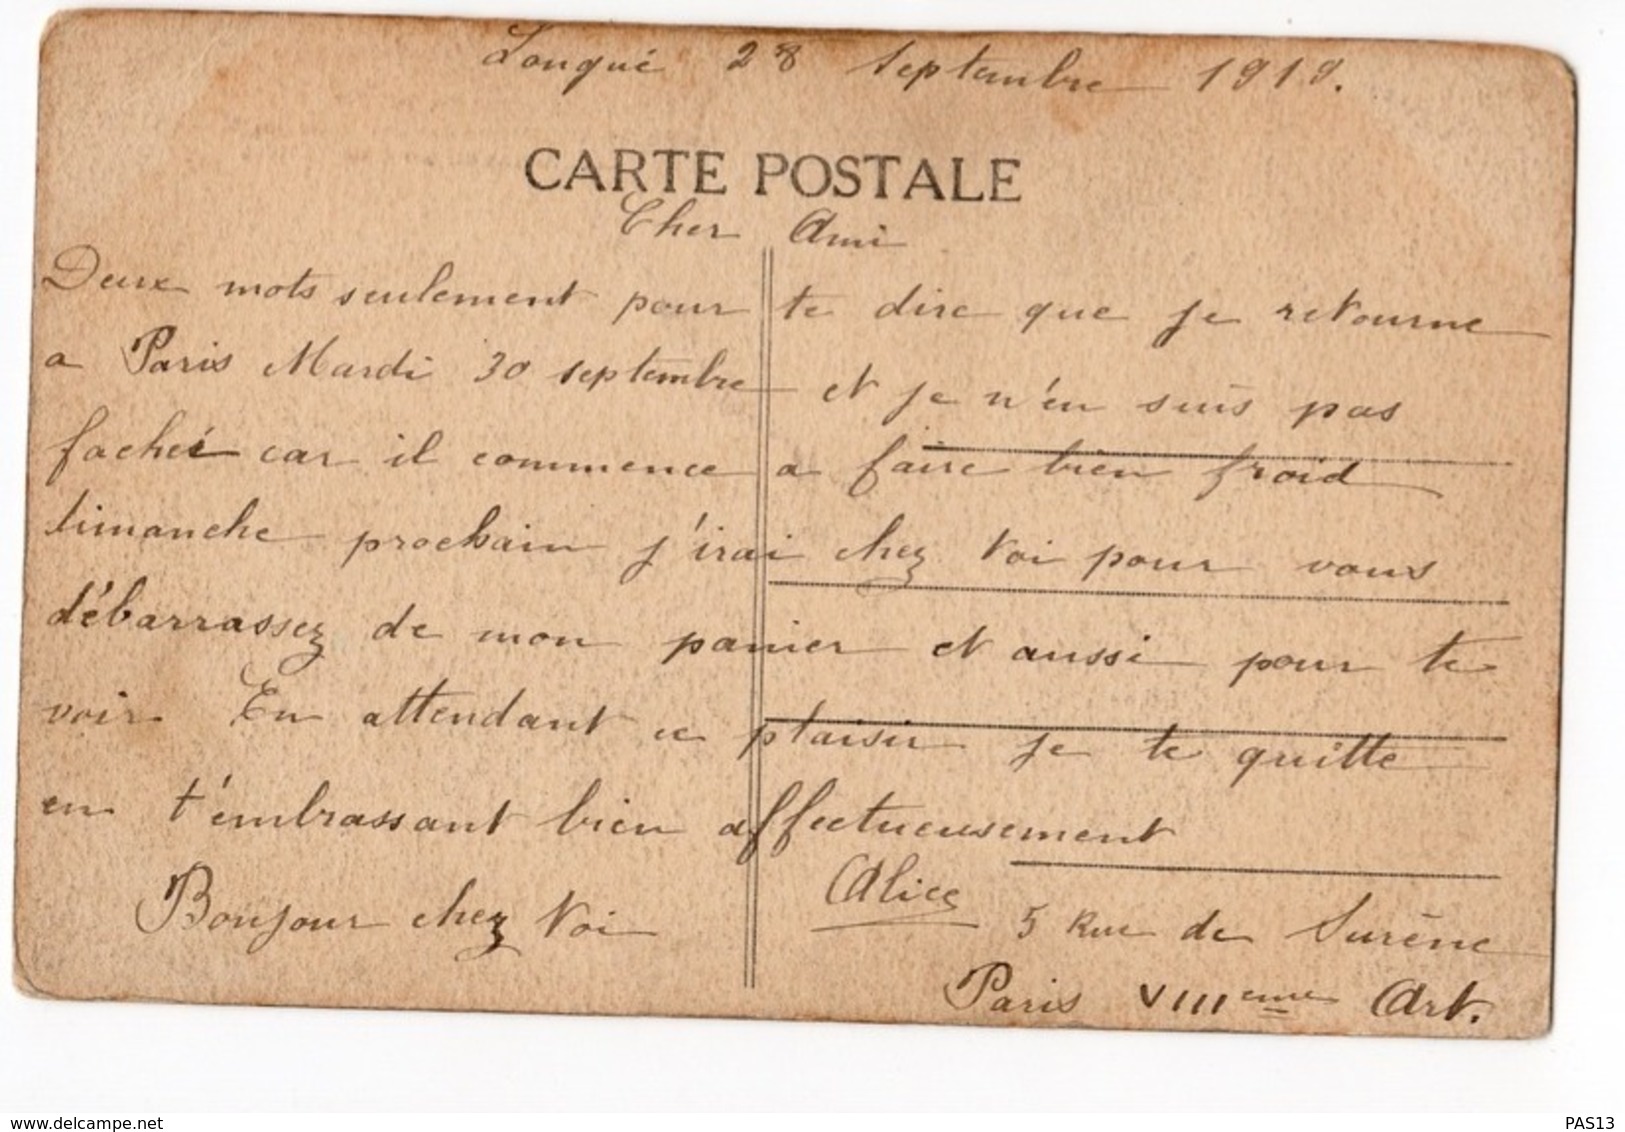 Longué 28 septembre 1919.
CARTE POSTALE
Cher Ami
Deux mots seulement pour te dire que je retourne
a Paris Mardi 30 septembre et je n'en suis pas
fachée car il commence a faire bien froid
dimanche prochain j'irai chez toi pour vous
débarrassez de mon panier et aussi pour te
voir. En attendant ce plaisir je te quitte
en t'embrassant bien affectueusement
Alice
Bonjour chez toi
5 Rue de Surène
Paris VIIIeme Art.
www.delcampe.net
PAS13